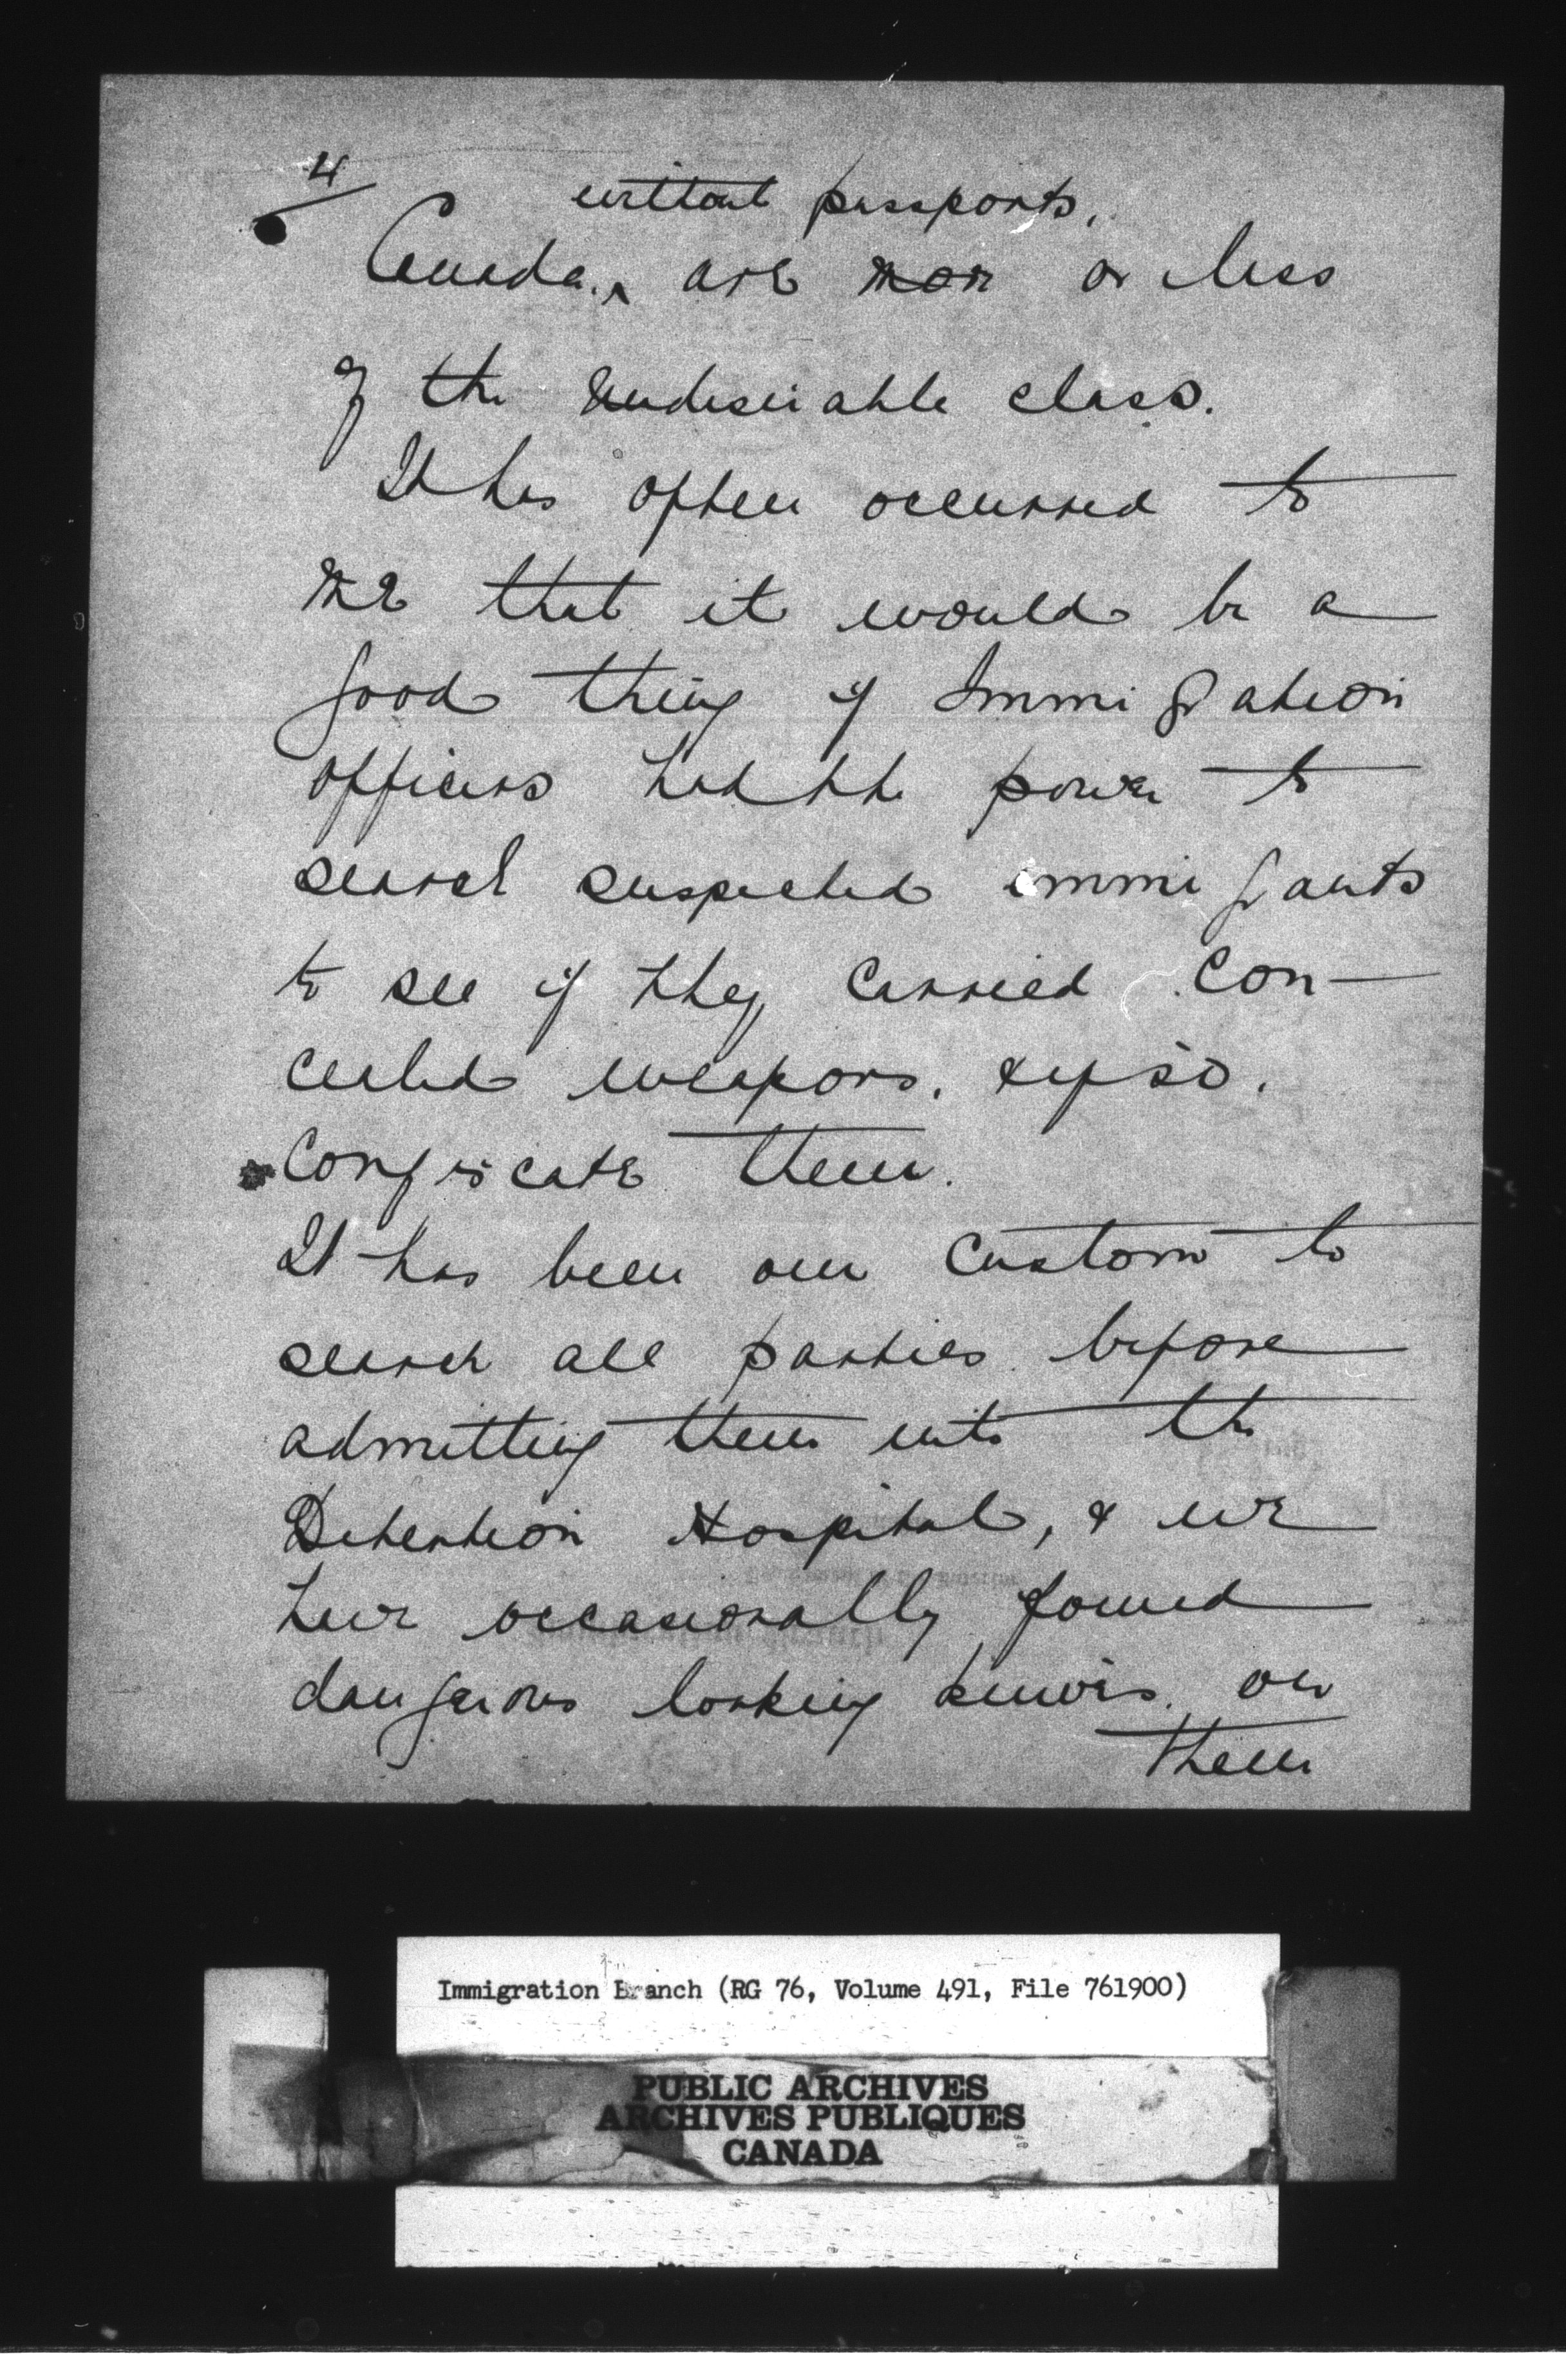 4
without passports,
Canada.^ are more or less
of the undesirable class.
It has often occurred to
me that it would be a
good thing if Immigration
officers had the power to
search suspected immigrants
to see if they carried con-
cealed weapons, & if so,
confiscate them.
It has been our custom to
search all parties before
admitting them into the
Detention Hospital, & we
have occasionally found
dangerous looking knives on
them
Immigration Branch (RG 76, Volume 491, File 761900)
PUBLIC ARCHIVES
ARCHIVES PUBLIQUES
CANADA